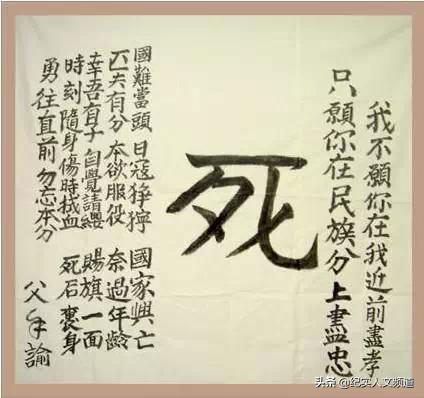 我不願你在我近前盡孝
只願你在民族分上盡忠
死
國難當頭 日寇猙獰 國家興亡
匹夫有分 本欲服役 奈過年齡
幸吾有子 自覺請纓 賜旗一面
時刻隨身 傷時拭血 死后裹身
勇往直前 勿忘本分
父手諭
头条 @纪实人文频道